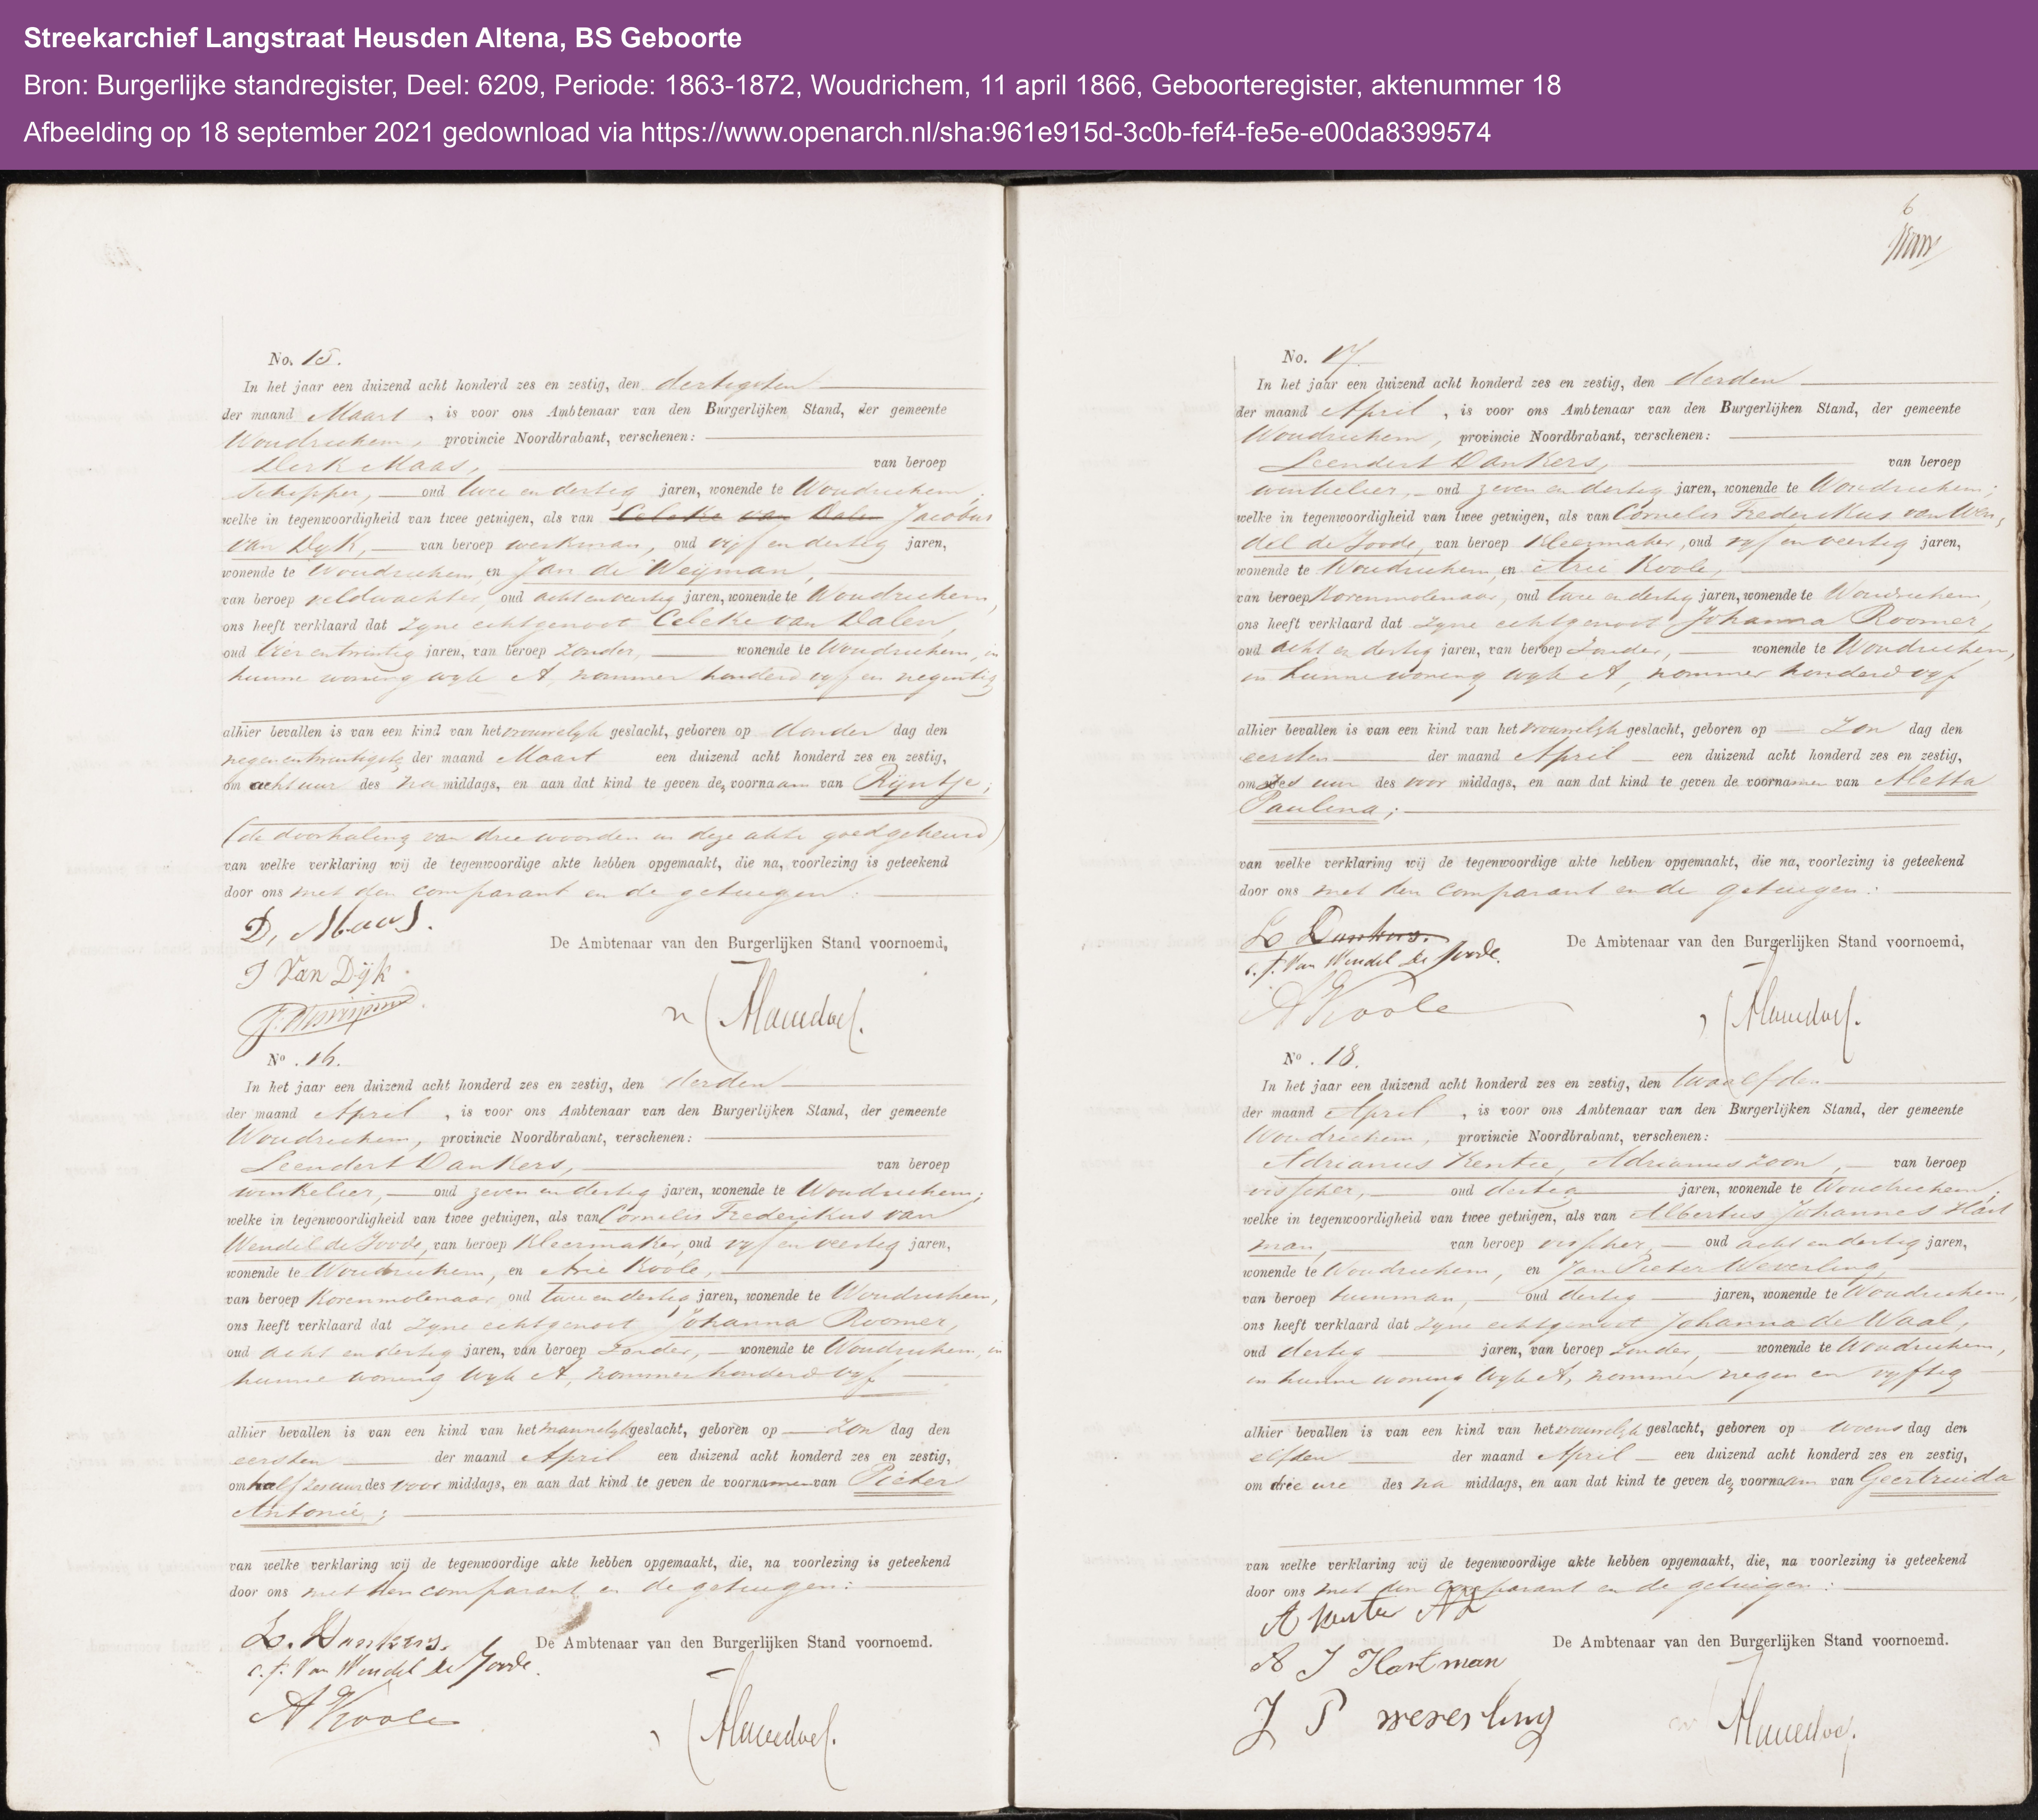 Streekarchief Langstraat Heusden Altena, BS Geboorte
Bron: Burgerlijke standregister, Deel: 6209, Periode: 1863-1872, Woudrichem, 11 april 1866, Geboorteregister, aktenummer 18
Afbeelding op 18 september 2021 gedownload via https://www.openarch.nl/sha:961e915d-3c0b-fef4-fe5e-e00da8399574
No. 15.
In het jaar een duizend acht honderd zes en zestig, den dertigsten
der maand Maart, is voor ons Ambtenaar van den Burgerlijken Stand, der gemeente
Woudrichem, provincie Noordbrabant, verschenen:
Derk Maas, van beroep
Schipper, oud twee en dertig jaren, wonende te Woudrichem;
welke in tegenwoordigheid van twee getuigen, als van Celeke van Dalen Jacobus
van Dyk, van beroep werkman, oud vijf en dertig jaren,
wonende te Woudrichem, en Jan de Weijman,
van beroep veldwachter, oud acht en veertig jaren, wonende te Woudrichem,
ons heeft verklaard dat zyne echtgenoot Celeke van Dalen,
oud vier en twintig jaren, van beroep zonder, wonende te Woudrichem, in
hunne woning wyk A, nommer honderd vyf en negentig
alhier bevallen is van een kind van het vrouwelyk geslacht, geboren op donder dag den
negen en twintigste der maand Maart een duizend acht honderd zes en zestig,
om acht uur des na middags, en aan dat kind te geven de voornaam van Rijntje;
(de doorhaling van drie woorden in deze akte goedgekeurd)
van welke verklaring wij de tegenwoordige akte hebben opgemaakt, die na, voorlezing is geteekend
door ons met den comparant en de getuigen:
D, Maas.
De Ambtenaar van den Burgerlijken Stand voornoemd,
J Van Dijk
No. 16.
In het jaar een duizend acht honderd zes en zestig, den derden
der maand April, is voor ons Ambtenaar van den Burgerlijken Stand, der gemeente
Woudrichem, provincie Noordbrabant, verschenen:
Leendert Dankers, van beroep
winkelier, oud zeven en dertig jaren, wonende te Woudrichem;
welke in tegenwoordigheid van twee getuigen, als van Cornelis Frederikus van
Wendel de Joode, van beroep Kleermaker, oud vyf en veertig jaren,
wonende te Woudrichem, en Arie Koole,
van beroep Korenmolenaar, oud twee en dertig jaren, wonende te Woudrichem,
ons heeft verklaard dat zyne echtgenoot Johanna Roomer,
oud acht en dertig jaren, van beroep zonder, wonende te Woudrichem, in
hunne woning wyk A, nommer honderd vyf
alhier bevallen is van een kind van het mannelyk geslacht, geboren op zon dag den
eersten der maand April een duizend acht honderd zes en zestig,
om half zes uur des voor middags, en aan dat kind te geven de voornamen van Pieter
Antonie;
van welke verklaring wij de tegenwoordige akte hebben opgemaakt, die, na voorlezing is geteekend
door ons met den comparant en de getuigen:
L. Dankers.
De Ambtenaar van den Burgerlijken Stand voornoemd.
C. F. Van Wendel De Joode.
A Koole
6
No. 17.
In het jaar een duizend acht honderd zes en zestig, den derden
der maand April, is voor ons Ambtenaar van den Burgerlijken Stand, der gemeente
Woudrichem, provincie Noordbrabant, verschenen:
Leendert Dankers, van beroep
winkelier, oud zeven en dertig jaren, wonende te Woudrichem;
welke in tegenwoordigheid van twee getuigen, als van Cornelis Frederikus van Wen,
del de Joode, van beroep Kleermaker, oud vyf en veertig jaren,
wonende te Woudrichem, en Arie Koole,
van beroep Korenmolenaar, oud twee en dertig jaren, wonende te Woudrichem,
ons heeft verklaard dat zyne echtgenoot Johanna Roomer,
oud acht en dertig jaren, van beroep zonder, wonende te Woudrichem,
in hunne woning wyk A, nommer honderd vyf
alhier bevallen is van een kind van het vrouwelyk geslacht, geboren op zon dag den
eersten der maand April een duizend acht honderd zes en zestig,
om zes uur des voor middags, en aan dat kind te geven de voornamen van Aletta
Paulina;
van welke verklaring wij de tegenwoordige akte hebben opgemaakt, die na, voorlezing is geteekend
door ons met den comparant en de getuigen:
L Dankers.
De Ambtenaar van den Burgerlijken Stand voornoemd,
C. F. Van Wendel De Joode.
A Koole
No. 18.
In het jaar een duizend acht honderd zes en zestig, den twaalfden
der maand April, is voor ons Ambtenaar van den Burgerlijken Stand, der gemeente
Woudrichem, provincie Noordbrabant, verschenen:
Adrianus Kentie, Adrianuszoon, van beroep
visscher, oud dertig jaren, wonende te Woudrichem;
welke in tegenwoordigheid van twee getuigen, als van Albertus Johannes Hart
man, van beroep visscher, oud acht en dertig jaren,
wonende te Woudrichem, en Jan Pieter Weverling,
van beroep tuinman, oud dertig jaren, wonende te Woudrichem,
ons heeft verklaard dat zyne echtgenoot Johanna de Waal,
oud dertig jaren, van beroep zonder, wonende te Woudrichem,
in hunne woning wyk A, nommer negen en vyftig
alhier bevallen is van een kind van het vrouwelyk geslacht, geboren op woens dag den
elfden der maand April een duizend acht honderd zes en zestig,
om drie ure des na middags, en aan dat kind te geven de voornaam van Geertruida
van welke verklaring wij de tegenwoordige akte hebben opgemaakt, die, na voorlezing is geteekend
door ons met den comparant en de getuigen:
A Kentie AZ
De Ambtenaar van den Burgerlijken Stand voornoemd.
A J Hartman
J P weverling